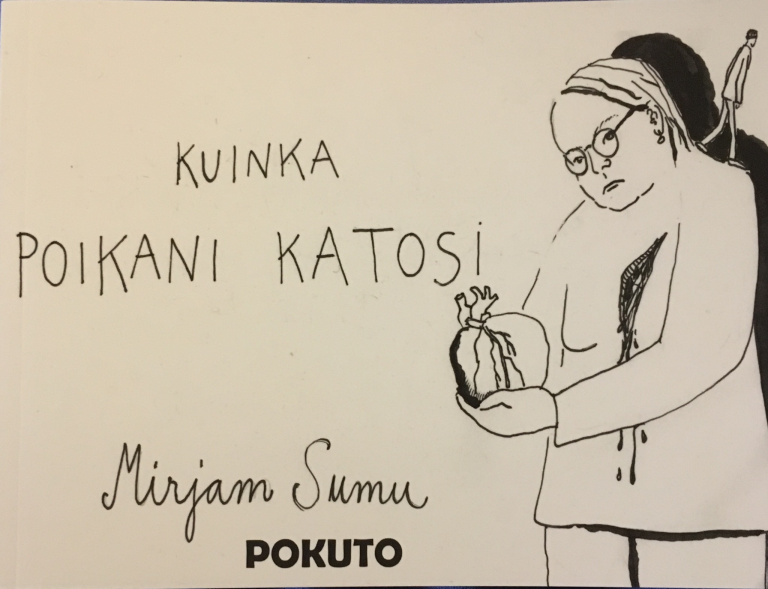 KUINKA
POIKANI KATOSi
Mirjam Sumu
POKUTO